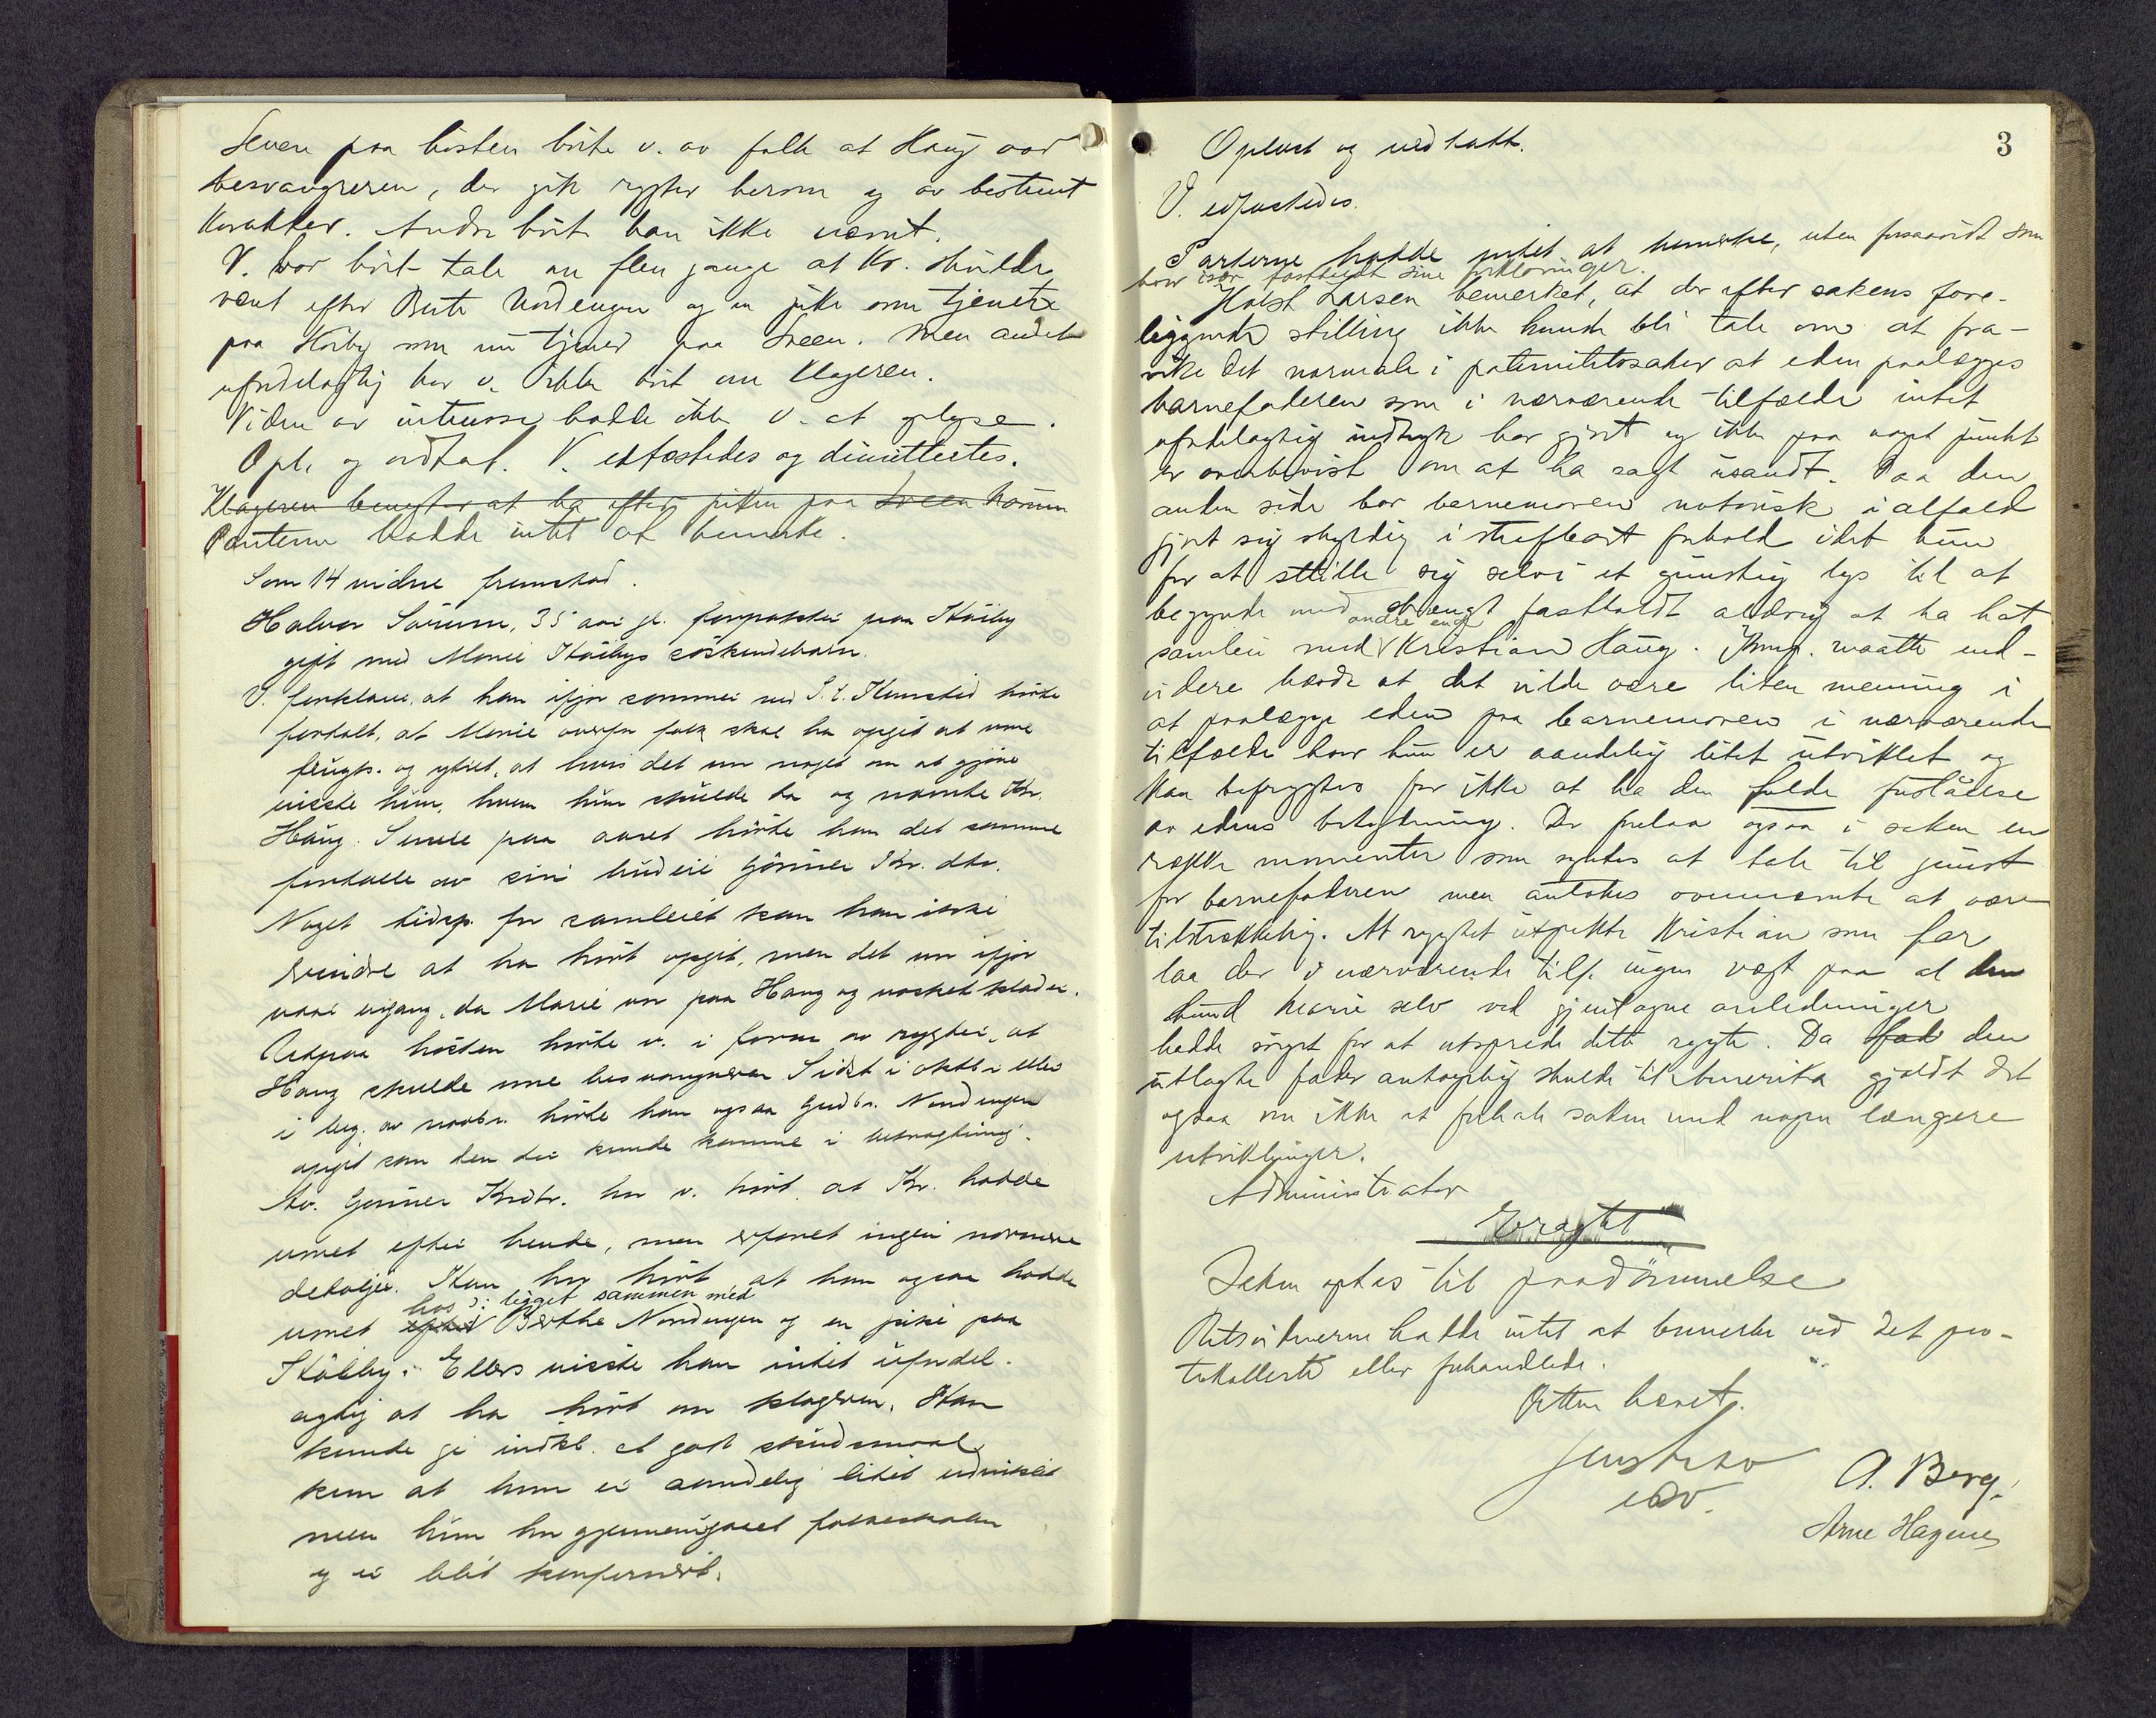 Senere paa høsten hørte v. av folk at Haug var
besvangreren, der gik rygter herom og av bestemt
karakter. Andre hørte han ikke nævnt.
V. har hørt tale om flere gange at Kr. skulde
været efter Berte Nordengen og en pike som tjente
paa Kolby som nu tjener paa Sveen. Men andet
ufordelagtig har v. ikke hørt om klageren.
Viden av interesse hadde ikke v. at oplyse.
Opl. og vedtat. V. edfæstedes og dimitteertes.
Klageren benegter at ha efter piken paa Sveen
Parterne hadde intet at bemerke.
Som 14 vidne fremstod.
Halvor Sørum, 35 aar gl. forpakter paa
gift med Marie søskendebarn.
V. forklarer, at han ifjor sommer ved hørte
fortalt, at Marie overfor folk skal ha opgit at være
frugts. og ytret, at hvis det var noget om at gjøre
visste hun, hvem hun skulde ta og nævnte Kr.
Haug. Senere paa aaret hørte han det samme
fortalle av sin budeie Gønner Kr. dtr.
Noget tidsp. for samleiet kan han ikke
erindre at ha hørt opgit, men det var ifjor
vaar engang, da Marie var paa Haug og vasket klæder.
Utpaa høsten hørte v. i form av rygter, at
Haug skulde være besvangreren. Sidst i oktbr. eller
i beg. av novbr. hørte han ogsaa Gudbr. Nordengen
opgit som den der kunde komme i betragtning.
Av Gønner Krdtr. har v. hørt at Kr. hadde
været efter hende, men erfaret ingen nærmere
detaljer. Han har hørt, at han ogsaa hadde
hos ɔ: ligget sammen med
været efter Berthe Nordengen og en pike paa
Kolby. Ellers visste han intet ufordel-
agtig at ha hørt om klageren. Han
kunde gi indkl. et godt skudsmaal,
kun at hun er aandelig litet utviklet
men hun har gjennemgaaet folkeskolen
og er blit konfirmert.
3
Oplæst og vedtatt.
V. edfæstedes.
Parterne hadde intet at bemerke, uten forsaavidt som
hver især fastholdt sine forklaringer.
Holst Larsen bemerket, at der efter sakens fore-
liggende stilling ikke kunde bli tale om at fra-
vike det normale i paternitetssaker at eden paalægges
barnefaderen som i nærværende tilfælde intet
ufordelagtig indtryk har gjort og ikke paa noget punkt
er overbevist om at ha sagt usandt. Paa den
anden side har barnemoren notorisk i alfald
gjort sig skyldig i strafbart forhold idet hun
for at stille sig selv i et gunstig lys til at
begynde med strengt fastholdt aldrig at ha hat
andre end
samleie med Kristian Haug. Komp. maatte end-
videre hævde at det vilde være liten mening i
at paalægge eden paa barnemoren i nærværende
tilfælde hvor hun er aandelig litet utviklet og
kan befryktes for ikke at ha den fulde forstaaelse
av edens betydning. Der forelaa ogsaa i saken en
række momenter som syntes at tale til gunst
for barnefaderen men antokes ovennævnte at være
tilstrækkelig. At rygtet utpekte Kristian som far
laa der i nærværende tilf. ingen vegt paa al den
stund Marie selv ved gjentagne anledninger
hadde sørget for at utsprede dette rygte. Da fad den
utlagte fader antagelig skulde til Amerika gjaldt det
ogsaa om ikke at forhale saken med nogen længere
utviklinger.
Administrator
Eragtet
Saken optas til paadömmelse
Retsvidnerne hadde intet at bemerke ved det pro-
tokollerte eller forhandlede.
Retten hævet.
A. Berg.
Arne Hagene